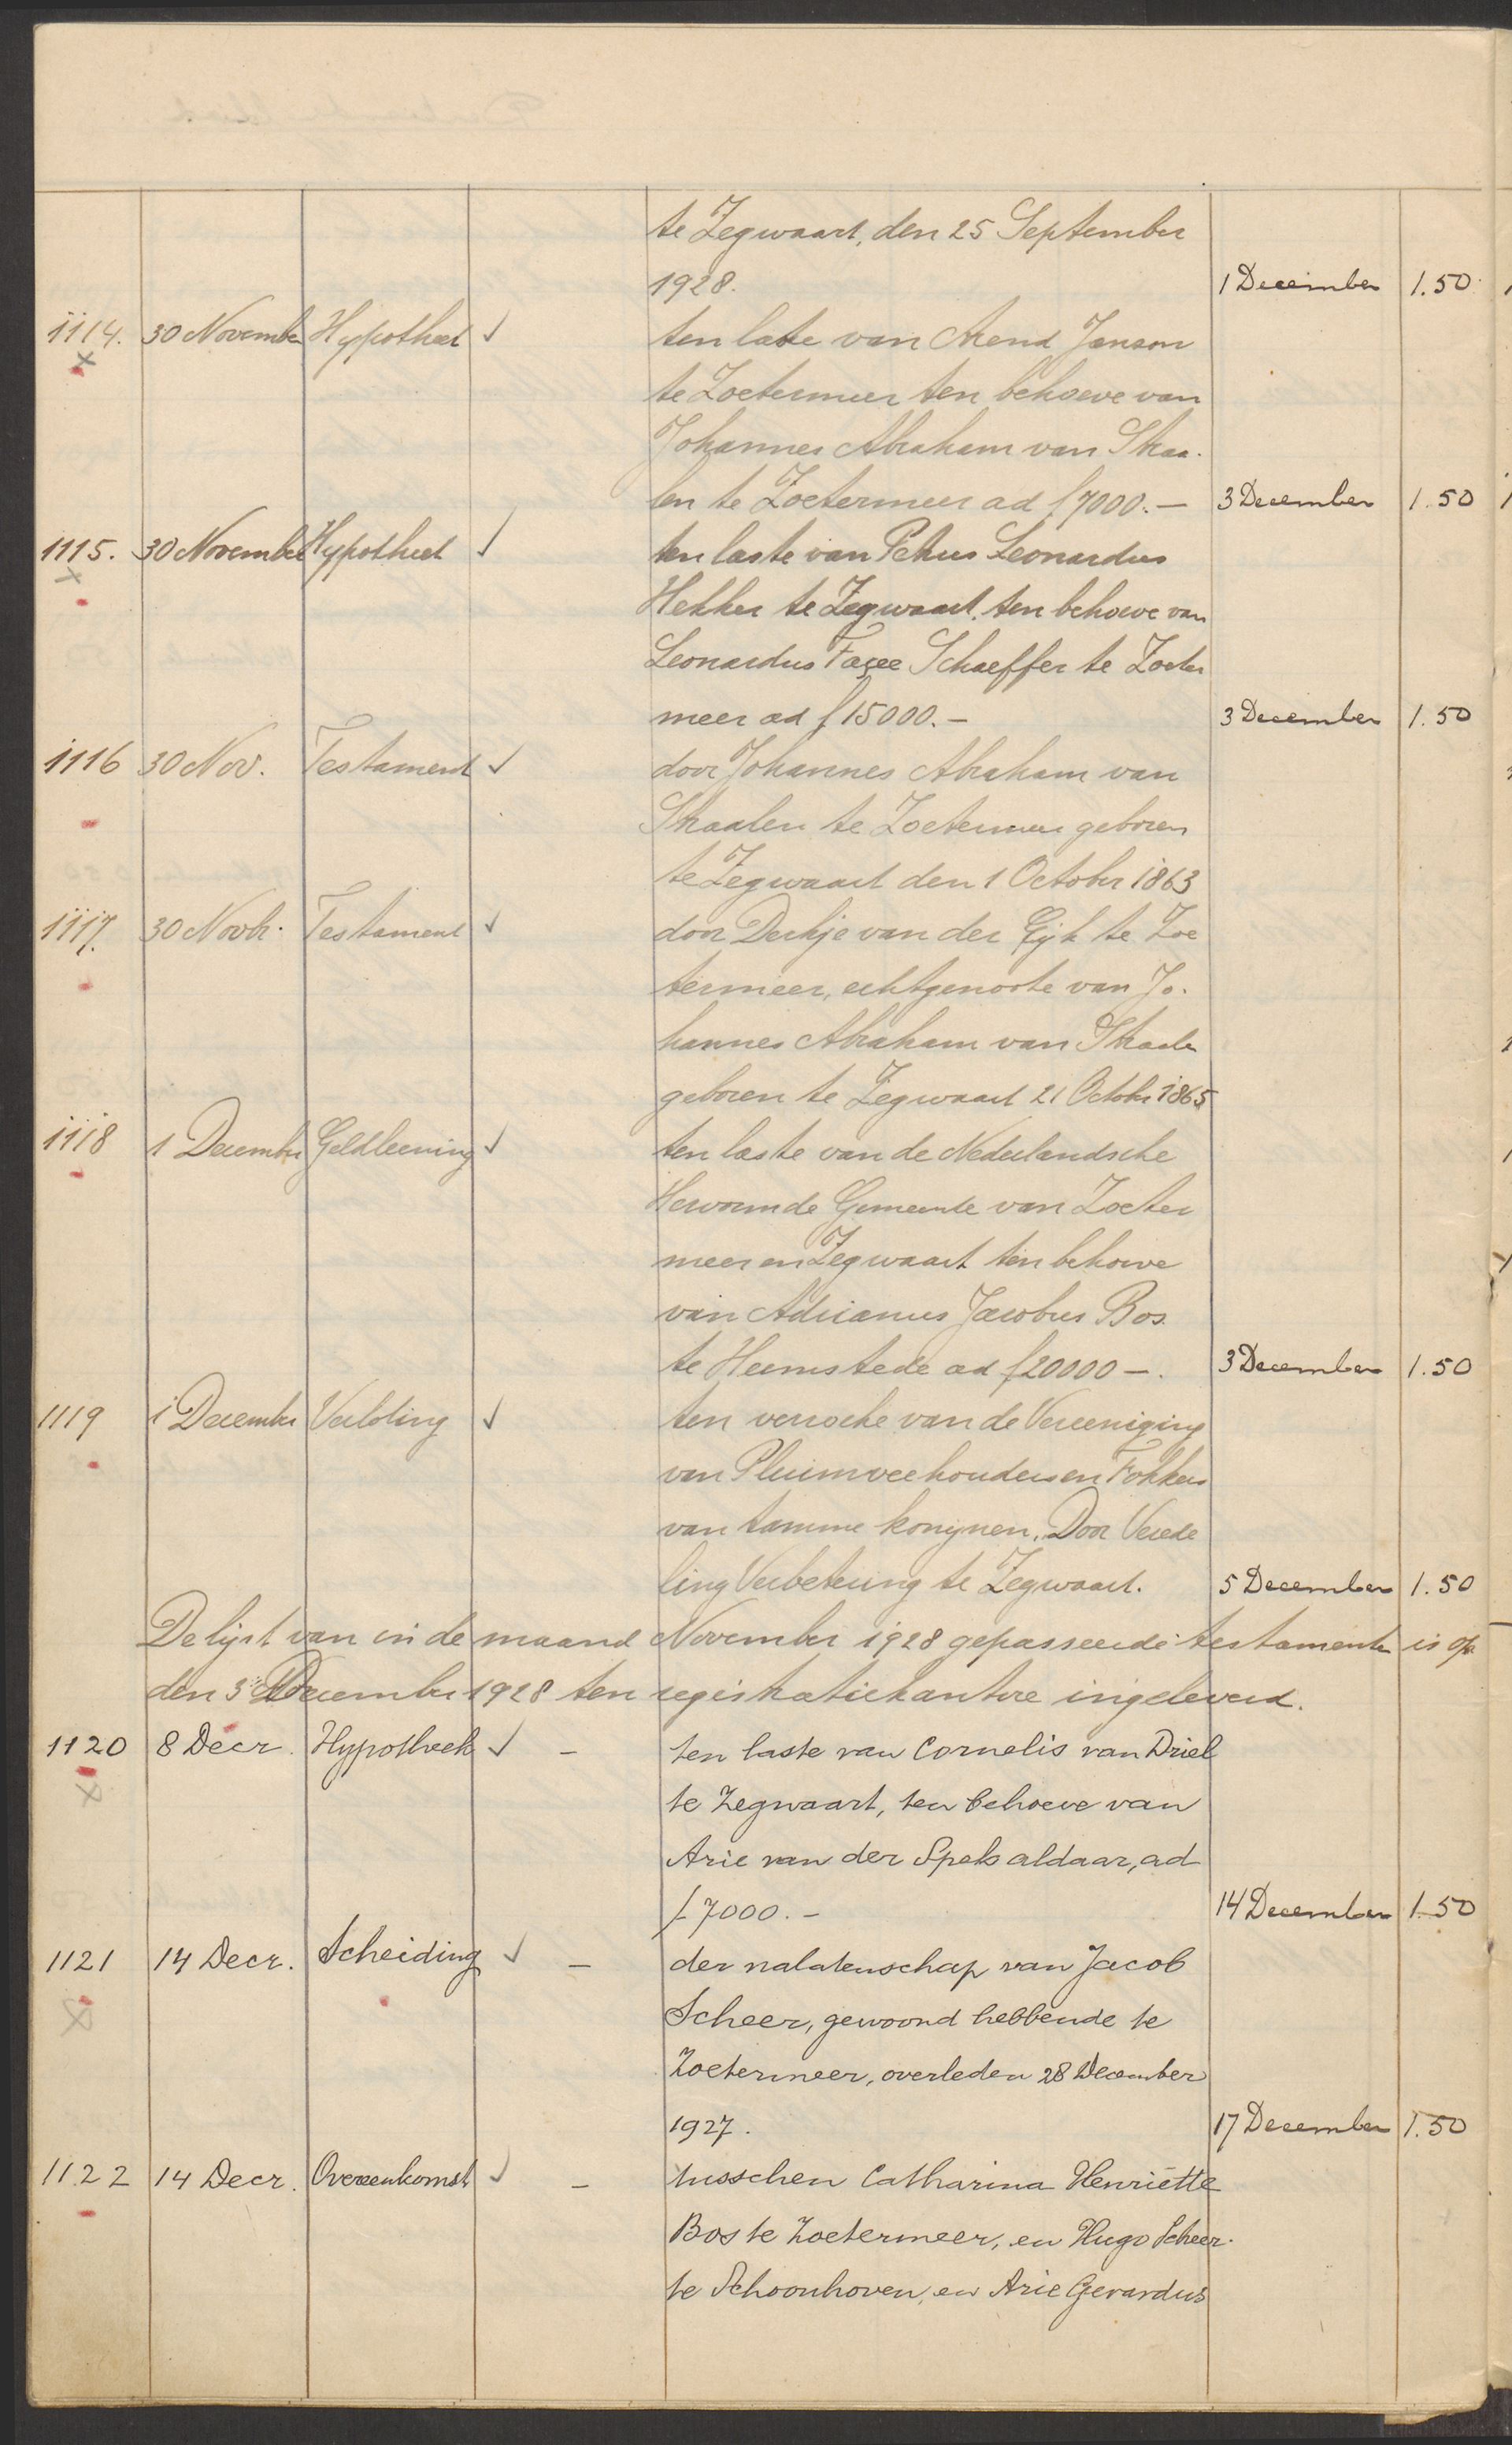 te Zegwaart, den 25 September
1928. 1 December 1.50
1114. 30 November Hypotheek ✓ ten laste van Arend Janson
te Zoetermeer ten behoeve van
Johannes Abraham van Straa-
len te Zoetermeer ad f 7000.— 3 December 1.50
1115. 30 November Hypotheek ✓ ten laste van Petrus Leonardus
Hekker te Zegwaart, ten behoeve van
Leonardus Facee Schaeffer te Zoeter
meer ad f 15000.— 3 December 1.50
1116 30 Nov. Testament ✓ door Johannes Abraham van
Straalen te Zoetermeer geboren
te Zegwaart den 1 October 1863
1117. 30 Novbr. Testament ✓ door Derkje van der Eijk te Zoe
termeer, echtgenoote van Jo-
hannes Abraham van Straalen
geboren te Zegwaart 21 October 1865
1118 1 December Geldleening ✓ ten laste van de Nederlandsche
Hervormde Gemeente van Zoeter
meer en Zegwaart ten behoeve
van Adrianus Jacobus Bos
te Heemstede ad f 20000 —. 3 December 1.50
1119 1 December Verloting ✓ ten verzoeke van de Vereeniging
van Pluimveehouders en Fokkers
van tamme konijnen, Door Verede
ling Verbetering te Zegwaart. 5 December 1.50
De lijst van in de maand November 1928 gepasseerde testamenten is op
den 3 December 1928 ten registratiekantore ingeleverd.
1120 8 Decr. Hypotheek ✓ – ten laste van Cornelis van Driel
te Zegwaart, ten behoeve van
Arie van der Spek aldaar, ad
f 7000.— 14 December 1.50
1121 14 Decr. Scheiding ✓ – der nalatenschap van Jacob
Scheer, gewoond hebbende te
Zoetermeer, overleden 28 December
1927. 17 December 1.50
1122 14 Decr. Overeenkomst ✓ – tusschen Catharina Henriëtte
Bos te Zoetermeer, en Hugo Scheer
te Schoonhoven, en Arie Gerardus